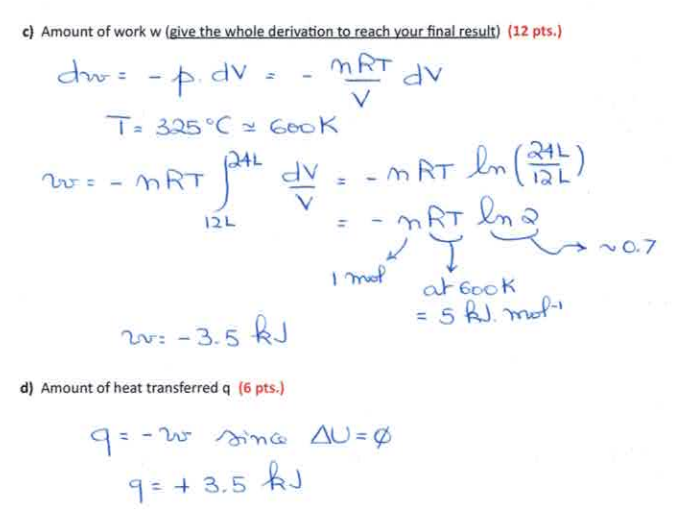 c) Amount of work w (give the whole derivation to reach your final result) (12 pts.)
dw = - p. dV = - nRT/V dV
T = 325°C ≃ 600K
w = - nRT ∫ 12L 24L dV/V = - nRT ln (24L/12L)
= - nRT ln 2
~0.7
1 mol
at 600K
= 5 kJ. mol-1
w: -3.5 kJ
d) Amount of heat transferred q (6 pts.)
q = - w since ΔU = ∅
q = + 3.5 kJ